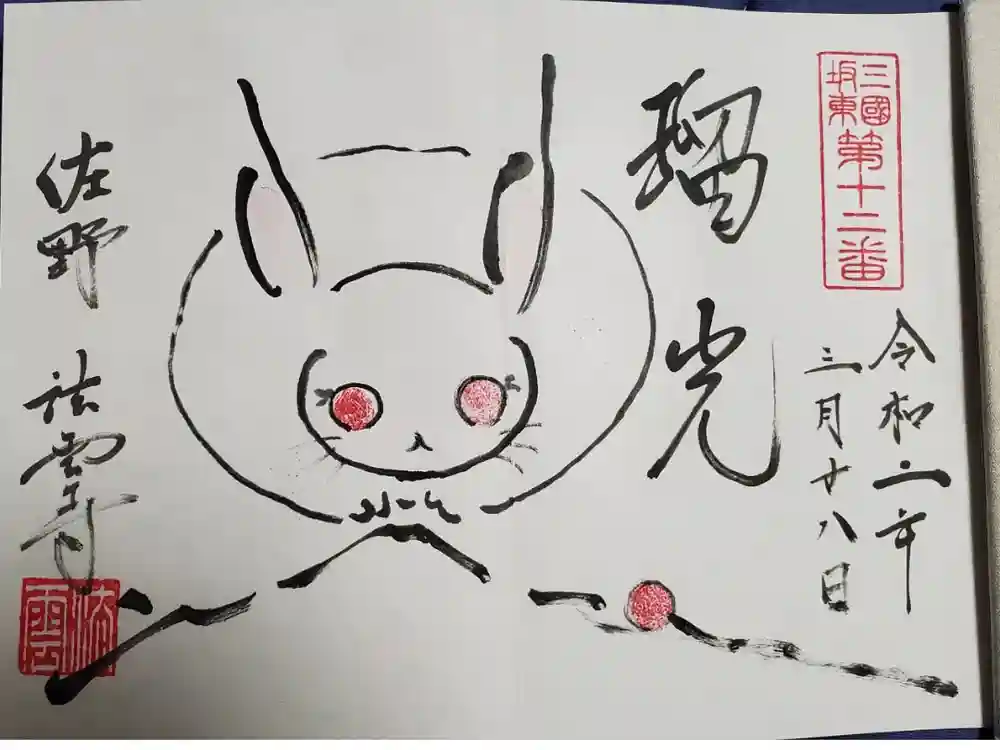 三國
坂東
第十二番
令和二年
三月十八日
瑠光
佐野
法雲寺
法雲